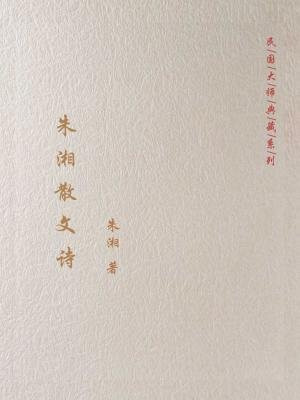 民国大师典藏系列
朱湘散文诗
朱湘 著